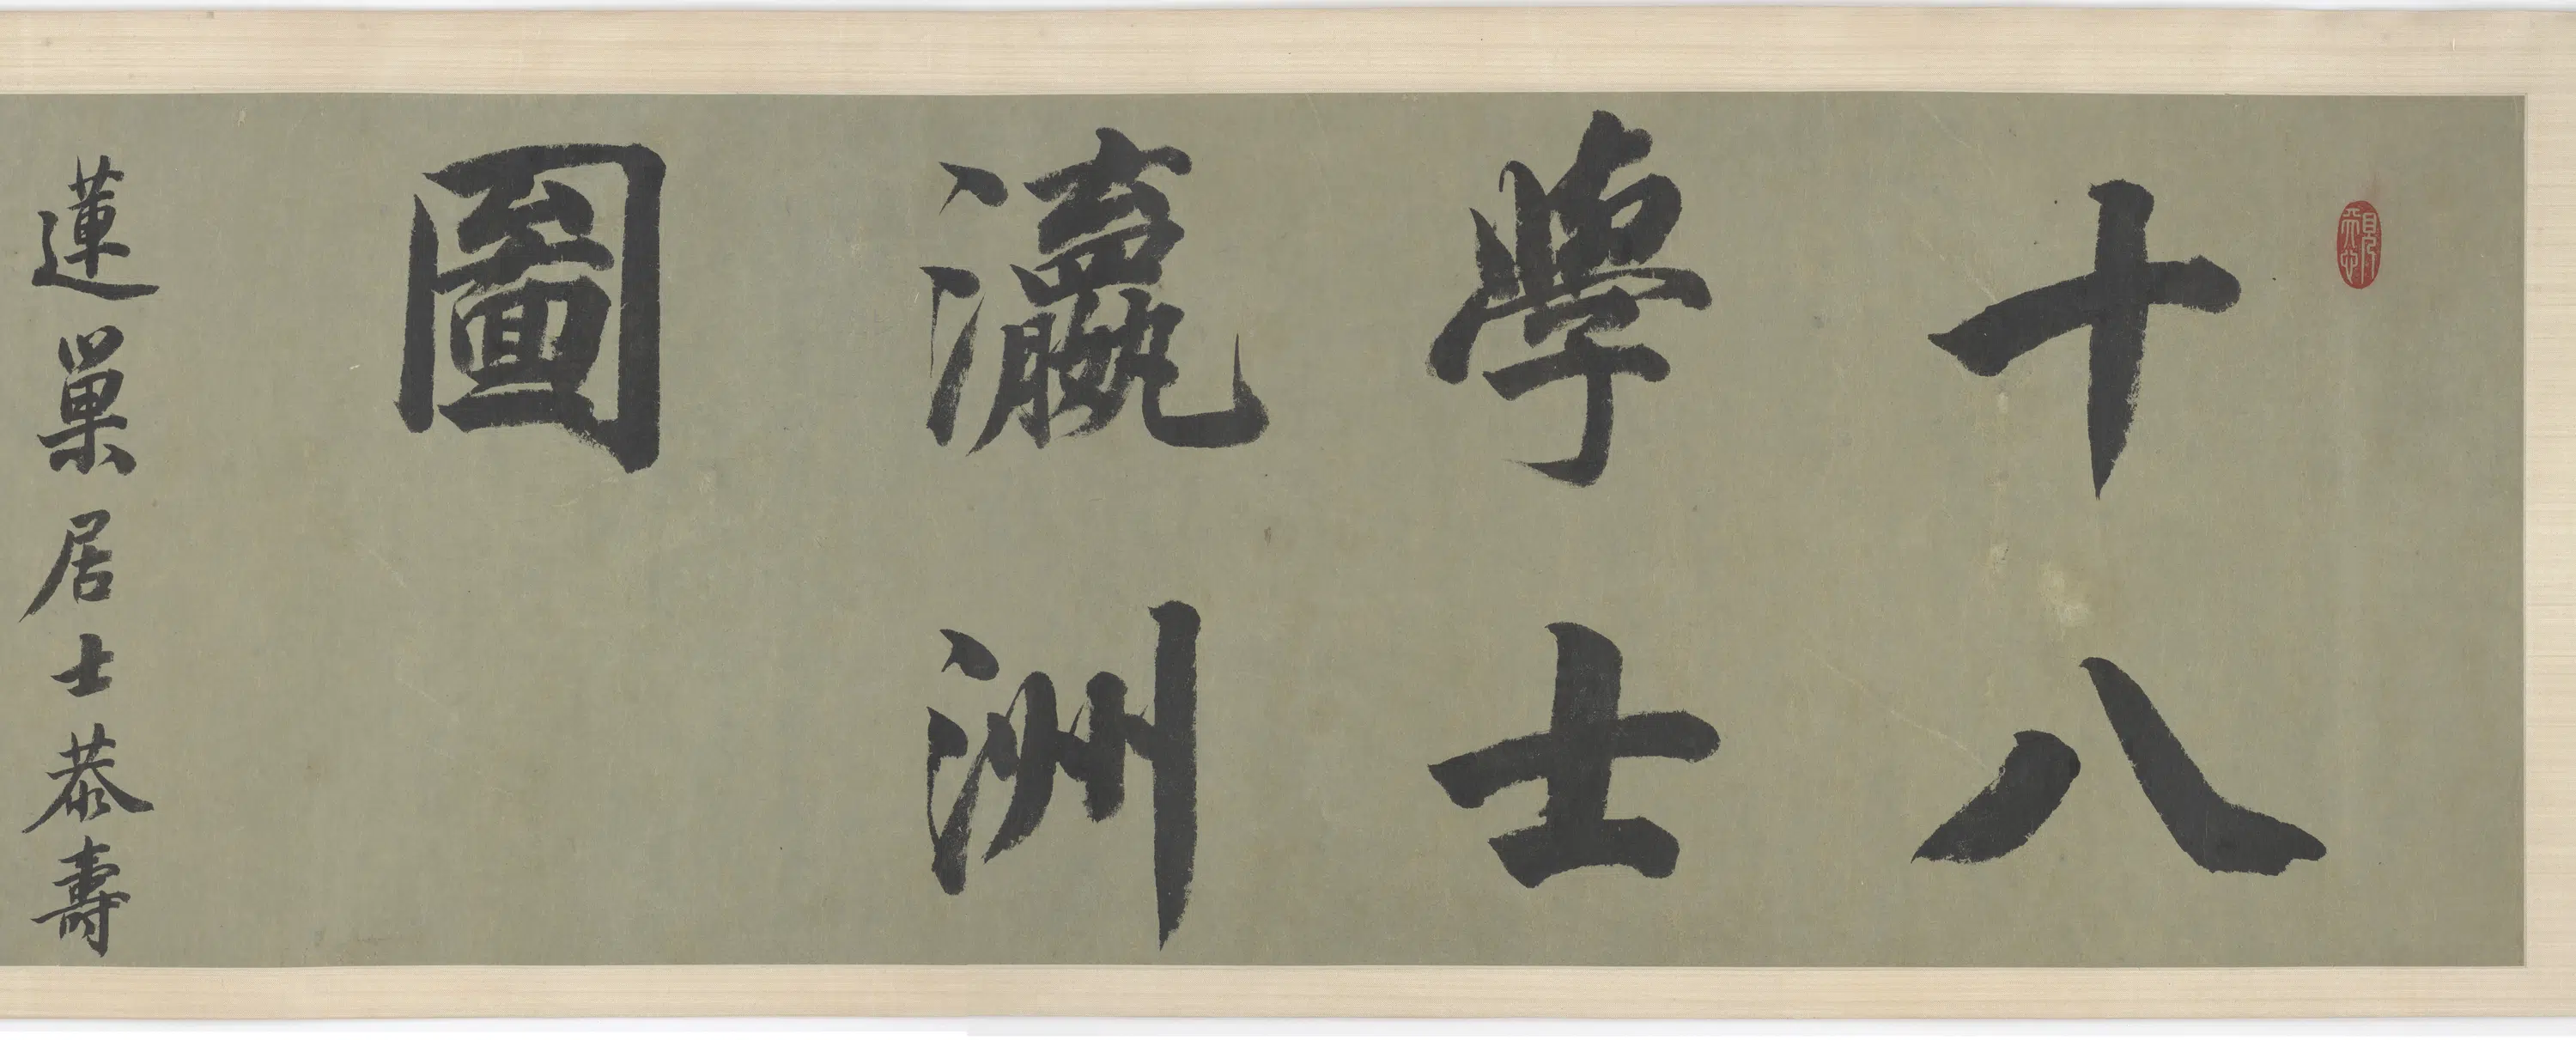 十八
學士
瀛洲
圖
蓮巢居士恭壽